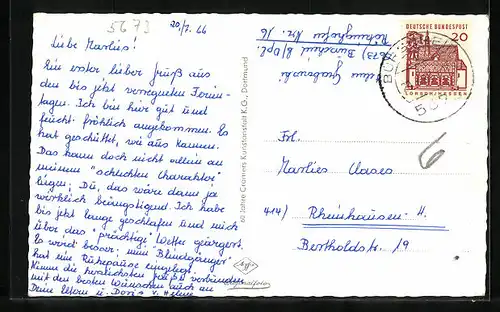 5673
20/7. 66
Liebe Marlies!
Ein erster lieber Gruß aus
den bis jetzt verregneten Ferien-
tagen. Ich bin hier gut und
feucht fröhlich angekommen. Es
hat geschüttet, wie aus Kannen.
Das kann doch nicht allein an
meinem "schlechten Charakter"
liegen; Du, das wäre dann ja
wirklich beängstigend. Ich habe
bis jetzt lange geschlafen und mich
über das "prächtige" Wetter geärgert.
Es wird besser; mein "Blindgänger"
hat eine Ruhepause eingelegt.
Nimm die herzlichsten Grüße verbunden
mit den besten Wünschen auch an
Deine Eltern u. Doris v. Helene
60 Jahre Cramers Kunstanstalt K.G., Dortmund
Agfa
Originalfoto
DEUTSCHE BUNDESPOST
20
LORSCH/HESSEN
6
Frl.
Marlies Clases
414) Rheinhausen-H.
Bertholdstr. 19